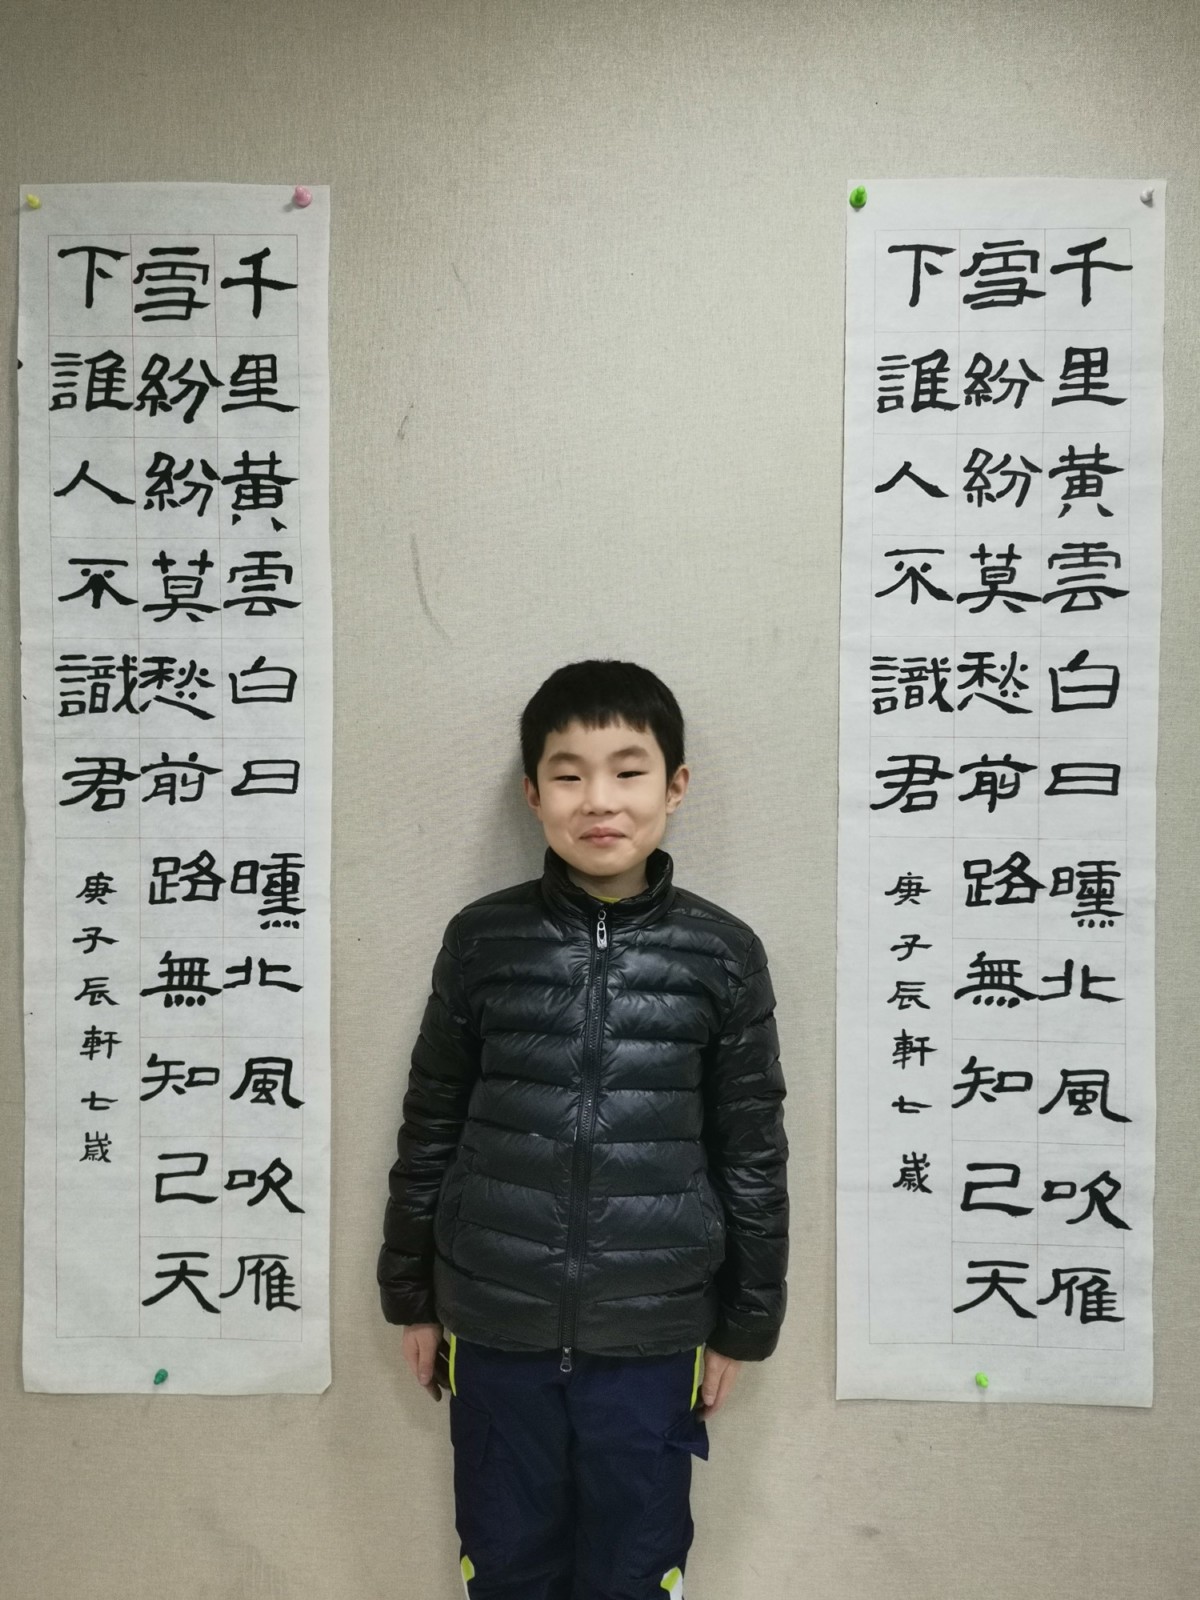 千里黄雲白日曛北風吹雁
雪紛紛莫愁前路無知己天
下誰人不識君
庚子辰軒七歲
千里黄雲白日曛北風吹雁
雪紛紛莫愁前路無知己天
下誰人不識君
庚子辰軒七歲